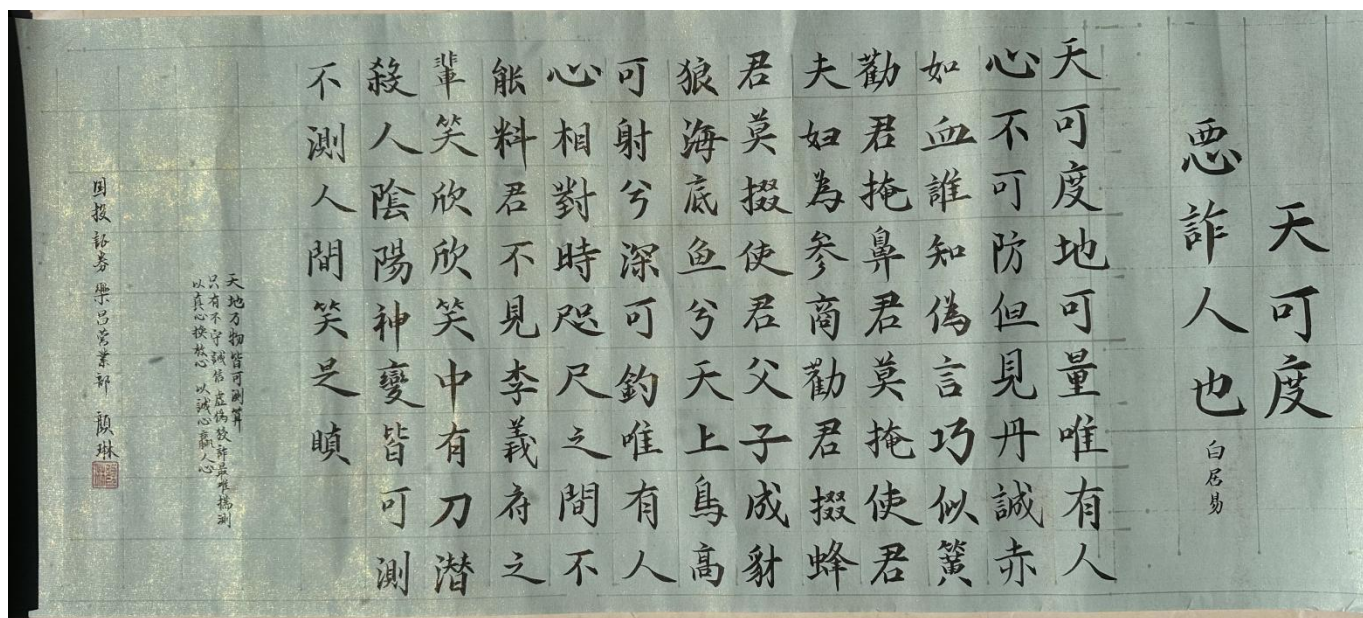 天可度
惡詐人也
白居易
天可度地可量唯有人
心不可防但見丹誠赤
如血誰知偽言巧似簧
勸君掩鼻君莫掩使君
夫妇為参商勸君掇蜂
君莫掇使君父子成豺
狼海底鱼兮天上鳥高
可射兮深可釣唯有人
心相對時咫尺之間不
能料君不見李義府之
輩笑欣欣笑中有刀潜
殺人陰陽神變皆可測
不測人間笑是瞋
天地万物皆可測算
只有不守誠信虚偽欺詐最难揣測
以真心换放心以誠心贏人心
国投証券樂昌营業部 顏琳